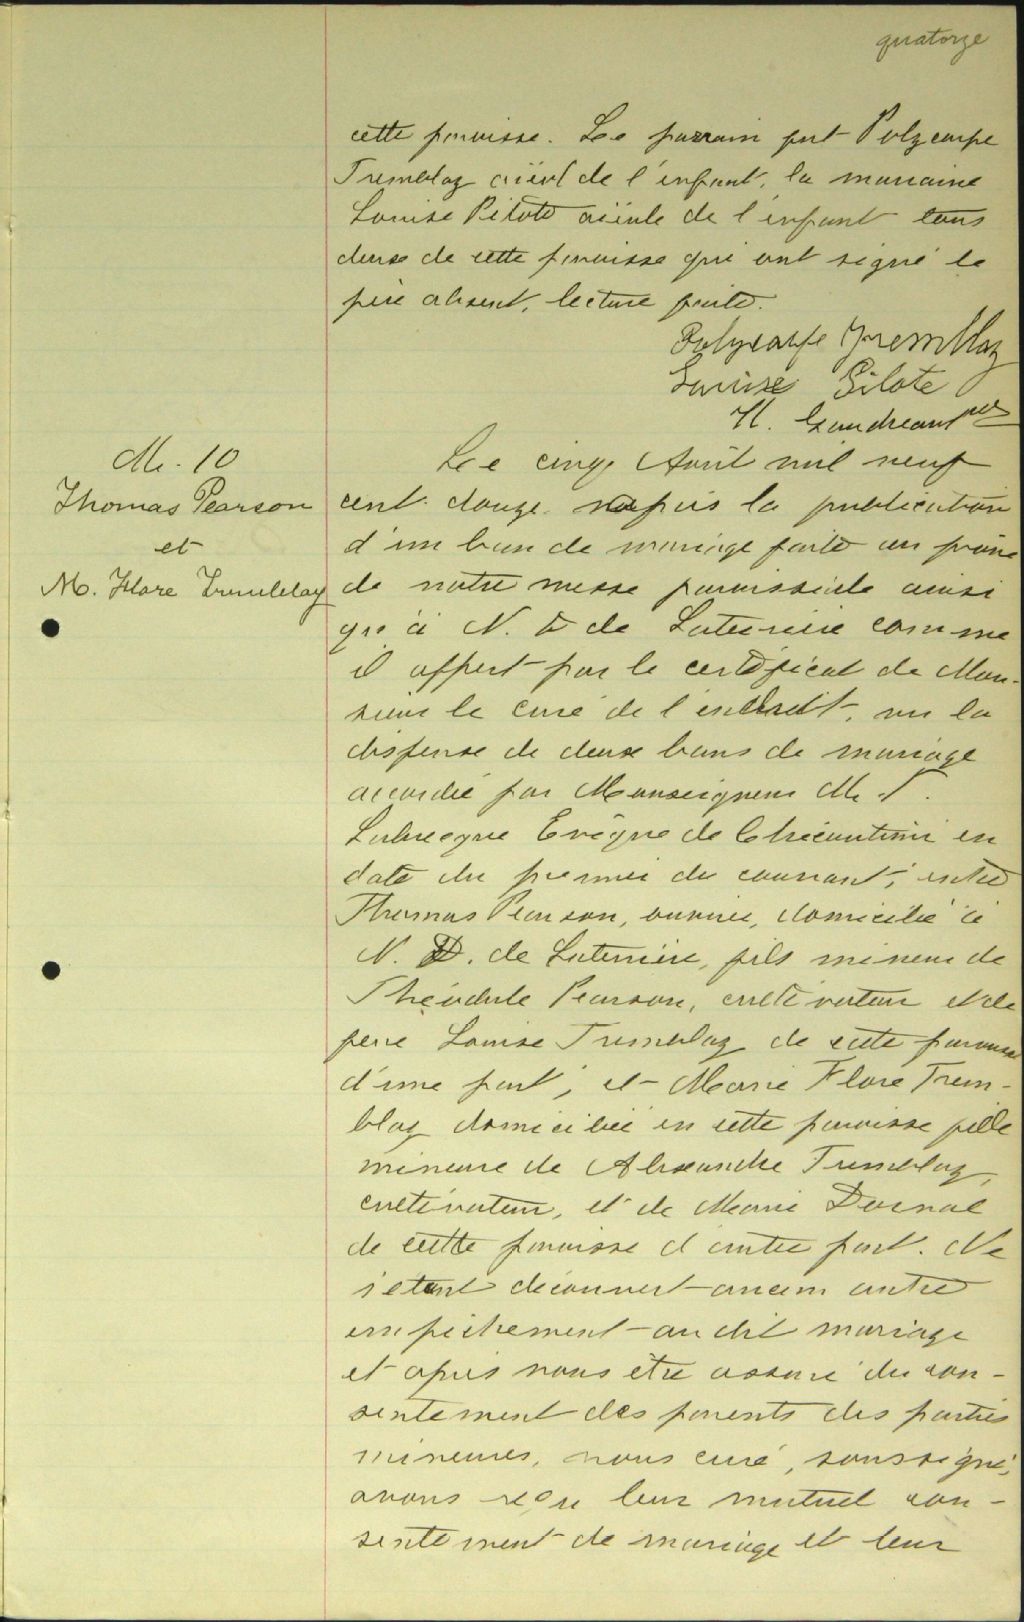 quatorze
cette paroisse. Le parrain fut Polycarpe
Tremblay aïeul de l'enfant, la marraine
Louise Pilote aïeule de l'enfant tous
deux de cette paroisse qui ont signé le
père absent, lecture faite.
Polycarpe Tremblay
Louise Pilote
H. Gaudreault ptre
M. 10
Thomas Pearson
et
M. Flore Tremblay
Le cinq Avril mil neuf
cent douze après la publication
d'un ban de mariage faite au prône
de notre messe paroissiale ainsi
qu'à N. D de Laterrière comme
il appert par le certificat de Mon-
sieur le curé de l'endroit, vu la
dispense de deux bans de mariage
accordée par Monseigneur M. T.
Labrecque Evêque de Chicoutimi en
date du premier du courant; entre
Thomas Pearson, ouvrier, domicilié à
N. D. de Laterrière, fils mineur de
Théodule Pearson, cultivateur et de
feue Louise Tremblay de cette paroisse
d'une part; et Marie Flore Trem-
blay domiciliée en cette paroisse fille
mineure de Alexandre Tremblay,
cultivateur, et de Marie Duchesne
de cette paroisse d'autre part. Ne
s'étant découvert aucun autre
empêchement au dit mariage
et après nous être assuré du con-
sentement des parents des parties
mineures, nous curé, soussigné,
avons reçu leur mutuel con-
sentement de mariage et leur